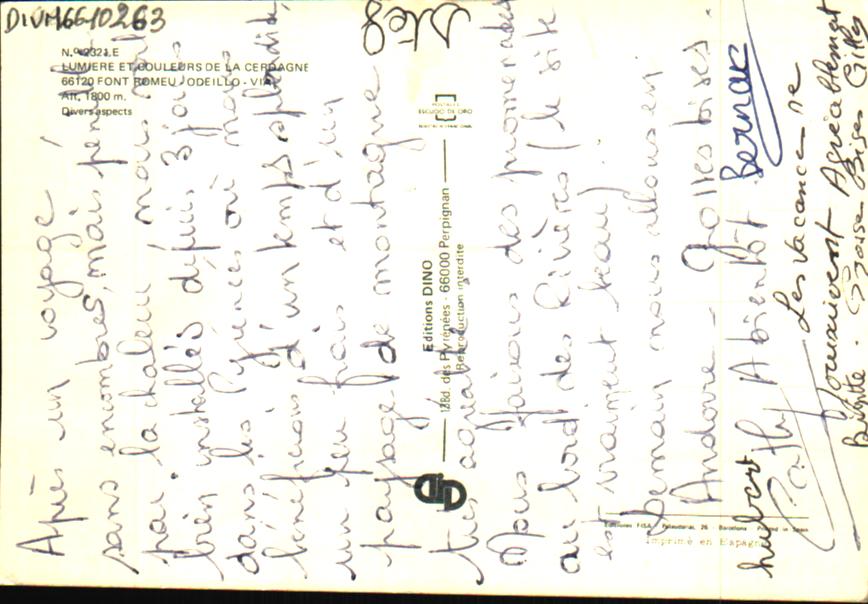 DIVM6610263
N.º 2321.E
LUMIERE ET COULEURS DE LA CERDAGNE
66120 FONT ROMEU - ODEILLO - VIA
Alt. 1800 m.
Divers aspects
Editions DINO
128d. des Pyrénées - 66000 Perpignan
Reproduction interdite
POSTALES
ESCUDO DE ORO
Imprimé en Espagne
Après un voyage
sans encombres, mais pénible
par la chaleur nous sommes
bien installés depuis 3 jours
dans les Pyrénées où nous
bénéficions d'un temps splendide,
un peu frais et d'un
paysage de montagne
très agréable
Nous faisons des promenades
au bord des Rivières (le site
est vraiment beau).
Demain nous allons en
Andorre - Grosses bises.
hubert Cathy A bientôt Bernac
Les vacances se
poursuivent Agréablement
Grosse Bises Gilles